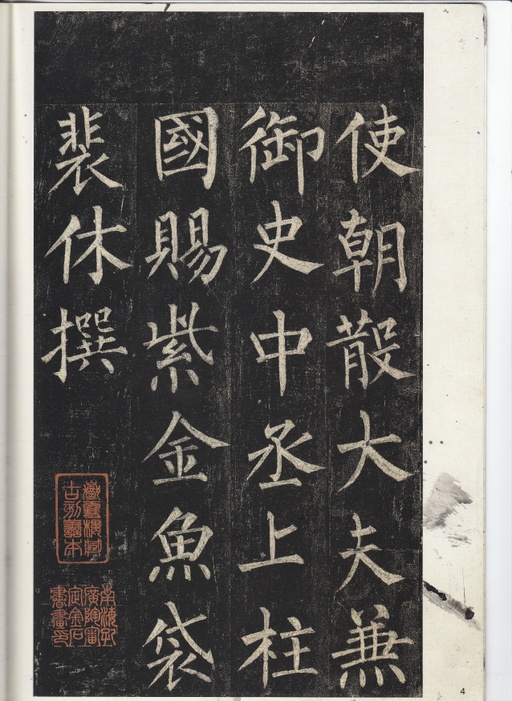 使朝散大夫兼
御史中丞上柱
國賜紫金魚袋
裴休撰
4